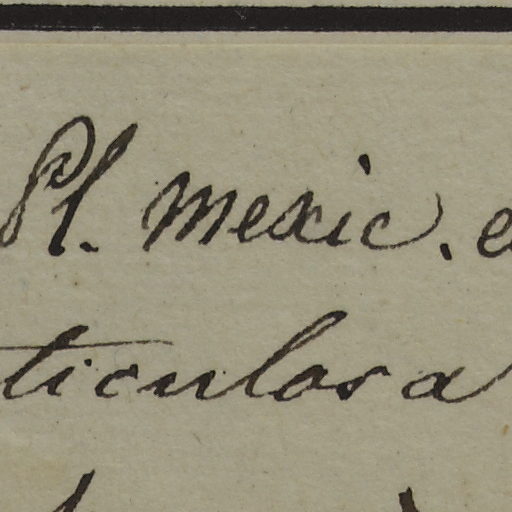 Pl. mexic. e
ticulosa